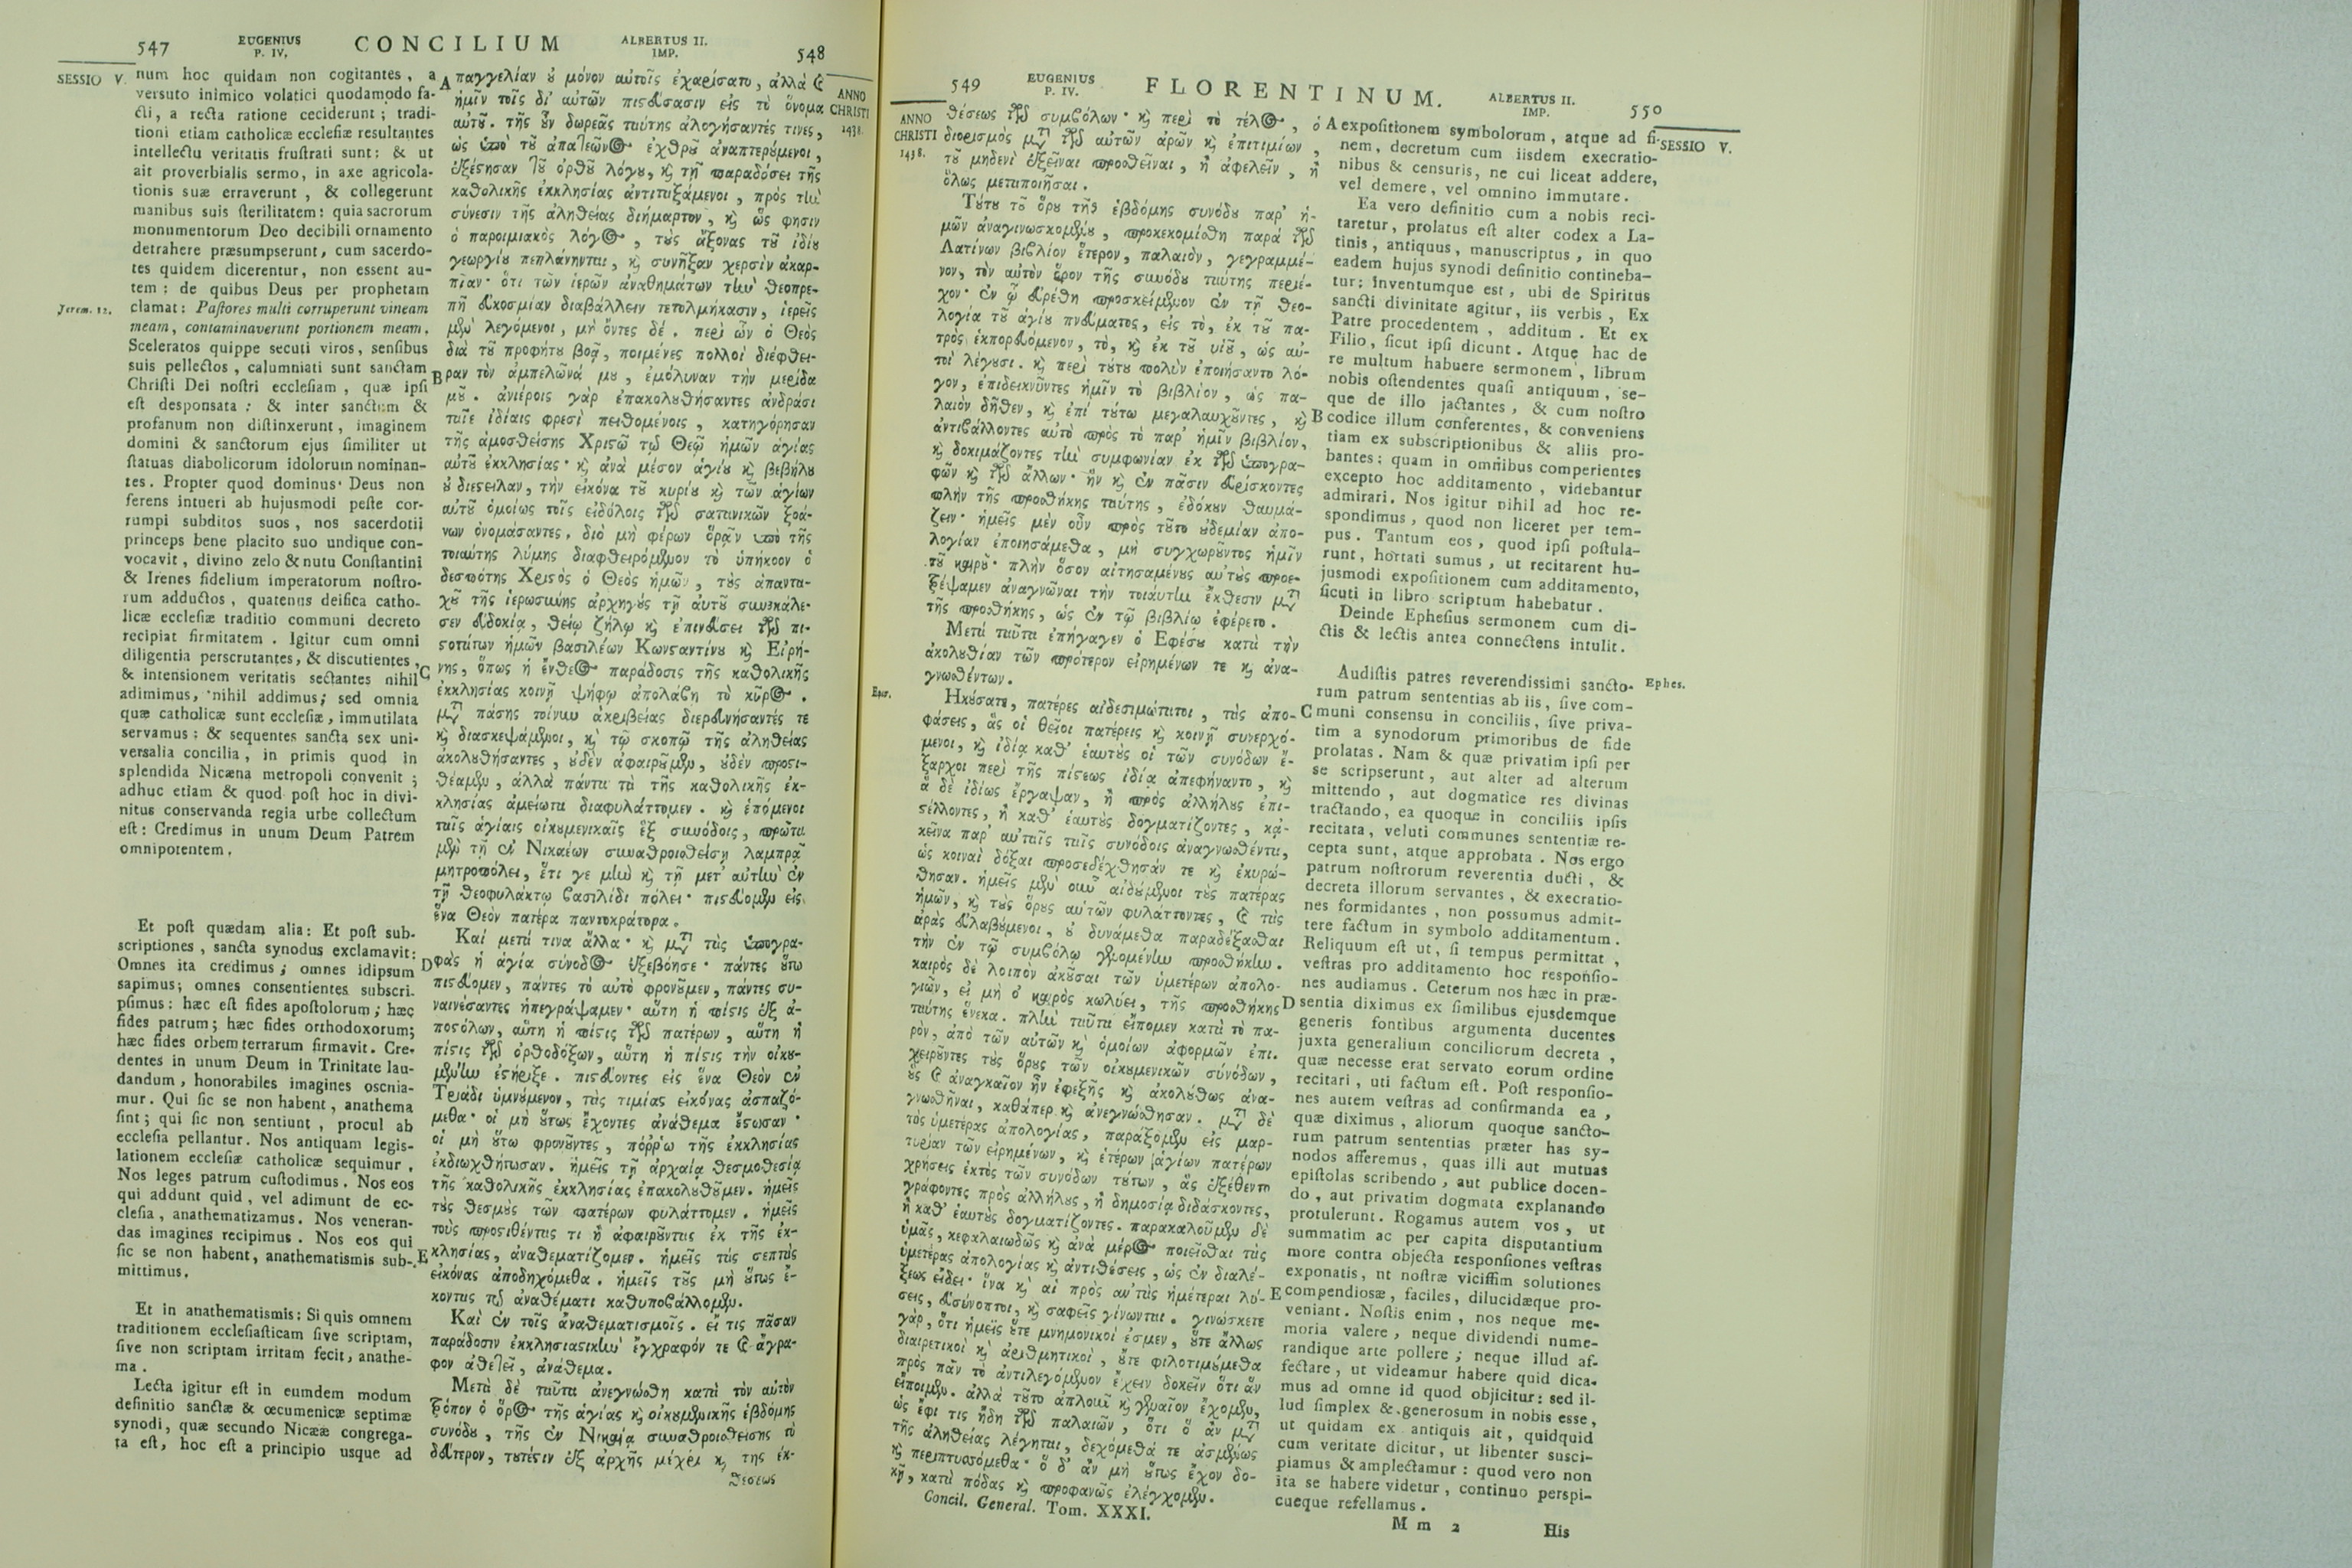 547 EUGENIUS P. IV. CONCILIUM ALBERTUS II. IMP. 548
SESSIO V.
num hoc quidam non cogitantes, a
versuto inimico volatici quodamodo fa-
cti, a recta ratione ceciderunt; tradi-
tioni etiam catholicæ ecclesiæ resultantes
intellectu veritatis frustrati sunt: & ut
ait proverbialis sermo, in axe agricola-
tionis suæ erraverunt, & collegerunt
manibus suis sterilitatem: quia sacrorum
monumentorum Deo decibili ornamento
detrahere præsumpserunt, cum sacerdo-
tes quidem dicerentur, non essent au-
tem: de quibus Deus per prophetam
Jerem. 12.
clamat: Pastores multi corruperunt vineam
meam, contaminaverunt portionem meam.
Sceleratos quippe secuti viros, sensibus
suis pellectos, calumniati sunt sanctam
Christi Dei nostri ecclesiam, quæ ipsi
est desponsata: & inter sanctum &
profanum non distinxerunt, imaginem
domini & sanctorum ejus similiter ut
statuas diabolicorum idolorum nominan-
tes. Propter quod dominus Deus non
ferens intueri ab hujusmodi peste cor-
rumpi subditos suos, nos sacerdotii
princeps bene placito suo undique con-
vocavit, divino zelo & nutu Constantini
& Irenes fidelium imperatorum nostro-
rum adductos, quatenus deifica catho-
licæ ecclesiæ traditio communi decreto
recipiat firmitatem. Igitur cum omni
diligentia perscrutantes, & discutientes,
& intensionem veritatis sectantes nihil
adimimus, nihil addimus; sed omnia
quæ catholicæ sunt ecclesiæ, immutilata
servamus: & sequentes sancta sex uni-
versalia concilia, in primis quod in
splendida Nicæna metropoli convenit;
adhuc etiam & quod post hoc in divi-
nitus conservanda regia urbe collectum
est: Credimus in unum Deum Patrem
omnipotentem.
Et post quædam alia: Et post sub-
scriptiones, sancta synodus exclamavit:
Omnes ita credimus; omnes idipsum
sapimus; omnes consentientes subscri-
psimus: hæc est fides apostolorum; hæc
fides patrum; hæc fides orthodoxorum;
hæc fides orbem terrarum firmavit. Cre-
dentes in unum Deum in Trinitate lau-
dandum, honorabiles imagines oscula-
mur. Qui sic se non habent, anathema
sint; qui sic non sentiunt, procul ab
ecclesia pellantur. Nos antiquam legis-
lationem ecclesiæ catholicæ sequimur.
Nos leges patrum custodimus. Nos eos
qui addunt quid, vel adimunt de ec-
clesia, anathematizamus. Nos veneran-
das imagines recipimus. Nos eos qui
sic se non habent, anathematismis sub-
mittimus.
Et in anathematismis: Si quis omnem
traditionem ecclesiasticam sive scriptam,
sive non scriptam irritam fecit, anathe-
ma.
Lecta igitur est in eumdem modum
definitio sanctæ & œcumenicæ septimæ
synodi, quæ secundo Nicææ congrega-
ta est, hoc est a principio usque ad
ANNO CHRISTI 1438.
A παγγελίαν ȣ μόνον αὐτοῖς ἐχαρίσατο, ἀλλὰ καὶ
ἡμῖν τοῖς δι' αὐτῶν πιστεύσασιν εἰς τὸ ὄνομα
αὐτοῦ. τῆς οὖν δωρεᾶς ταύτης ἀλογήσαντές τινες,
ὡς ὑπὸ τοῦ ἀπατεῶνος ἐχθροῦ ἀναπτερούμενοι,
ἐξέστησαν τοῦ ὀρθοῦ λόγου, καὶ τῇ παραδόσει τῆς
καθολικῆς ἐκκλησίας ἀντιταξάμενοι, πρὸς τὴν
σύνεσιν τῆς ἀληθείας διήμαρτον, καὶ ὥς φησιν
ὁ παροιμιακὸς λόγος, τοὺς ἄξονας τοῦ ἰδίου
γεωργίου πεπλάνηνται, καὶ συνῆξαν χερσὶν ἀκαρ-
πίαν· ὅτι τῶν ἱερῶν ἀναθημάτων τὴν θεοπρε-
πῆ εὐκοσμίαν διαβάλλειν τετολμήκασιν, ἱερεῖς
μὲν λεγόμενοι, μὴ ὄντες δέ. περὶ ὧν ὁ Θεὸς
διὰ τοῦ προφήτου βοᾷ, ποιμένες πολλοὶ διέφθει-
B ραν τὸν ἀμπελῶνά μου, ἐμόλυναν τὴν μερίδα
μου. ἀνιέροις γὰρ ἐπακολουθήσαντες ἀνδράσι
ταῖς ἰδίαις φρεσὶ πειθομένοις, κατηγόρησαν
τῆς ἁμοσθείσης Χριστῷ τῷ Θεῷ ἡμῶν ἁγίας
αὐτοῦ ἐκκλησίας· καὶ ἀνὰ μέσον ἁγίου καὶ βεβήλου
οὐ διέστειλαν, τὴν εἰκόνα τοῦ κυρίου καὶ τῶν ἁγίων
αὐτοῦ ὁμοίως τοῖς εἰδόλοις τῶν σατανικῶν ξοά-
νων ὀνομάσαντες. διὸ μὴ φέρων ὁρᾷν ὑπὸ τῆς
τοιαύτης λύμης διαφθειρόμενον τὸ ὑπήκοον ὁ
δεσπότης Χριστὸς ὁ Θεὸς ἡμῶν, τοὺς ἁπαντα-
χοῦ τῆς ἱερωσύνης ἀρχηγοὺς τῇ αὐτοῦ συνεκάλε-
σεν εὐδοκίᾳ, θείῳ ζήλῳ καὶ ἐπινεύσει τῶν πι-
στοτάτων ἡμῶν βασιλέων Κωνσταντίνου καὶ Εἰρή-
C νης, ὅπως ἡ ἔνθεος παράδοσις τῆς καθολικῆς
ἐκκλησίας κοινῇ ψήφῳ ἀπολάβῃ τὸ κῦρος.
μετὰ πάσης τοίνυν ἀκριβείας διερευνήσαντές τε
καὶ διασκεψάμενοι, καὶ τῷ σκοπῷ τῆς ἀληθείας
ἀκολουθήσαντες, οὐδὲν ἀφαιροῦμεν, οὐδὲν προστι-
θέαμεν, ἀλλὰ πάντα τὰ τῆς καθολικῆς ἐκ-
κλησίας ἀμείωτα διαφυλάττομεν. καὶ ἑπόμενοι
ταῖς ἁγίαις οἰκουμενικαῖς ἓξ συνόδοις, πρῶτα
μὲν τῇ ἐν Νικαέων συναθροισθείσῃ λαμπρᾷ
μητροπόλει, ἔτι γε μὴν καὶ τῇ μετ' αὐτὴν ἐν
τῇ θεοφυλάκτῳ βασιλίδι πόλει· πιστεύομεν εἰς
ἕνα Θεὸν πατέρα παντοκράτορα.
Καὶ μετά τινα ἄλλα· καὶ μετὰ τὰς ὑπογρα-
D φὰς ἡ ἁγία σύνοδος ἐξεβόησε· πάντες οὕτω
πιστεύομεν, πάντες τὸ αὐτὸ φρονοῦμεν, πάντες συ-
ναινέσαντες ἡπεγράψαμεν· αὕτη ἡ πίστις ἐξ ἀ-
ποστόλων, αὕτη ἡ πίστις τῶν πατέρων, αὕτη ἡ
πίστις τῶν ὀρθοδόξων, αὕτη ἡ πίστις τὴν οἰκου-
μένην ἐστήριξε. πιστεύοντες εἰς ἕνα Θεὸν ἐν
Τριάδι ὑμνούμενον, τὰς τιμίας εἰκόνας ἀσπαζό-
μεθα· οἱ μὴ οὕτως ἔχοντες ἀνάθεμα ἔστωσαν·
οἱ μὴ οὕτω φρονοῦντες, πόῤῥω τῆς ἐκκλησίας
ἐκδιωχθήτωσαν. ἡμεῖς τῇ ἀρχαίᾳ θεσμοθεσίᾳ
τῆς καθολικῆς ἐκκλησίας ἐπακολουθοῦμεν. ἡμεῖς
τοὺς θεσμοὺς τῶν πατέρων φυλάττομεν. ἡμεῖς
τοὺς προστιθέντας τι ἢ ἀφαιροῦντας ἐκ τῆς ἐκ-
E κλησίας, ἀναθεματίζομεν. ἡμεῖς τὰς σεπτὰς
εἰκόνας ἀποδηχόμεθα. ἡμεῖς τοὺς μὴ οὕτως ἔ-
χοντας τῷ ἀναθέματι καθυποβάλλομεν.
Καὶ ἐν τοῖς ἀναθεματισμοῖς. εἴ τις πᾶσαν
παράδοσιν ἐκκλησιαστικὴν ἔγγραφόν τε καὶ ἄγρα-
φον ἀθετεῖ, ἀνάθεμα.
Μετὰ δὲ ταῦτα ἀνεγνώσθη κατὰ τὸν αὐτὸν
τρόπον ὁ ὅρος τῆς ἁγίας καὶ οἰκουμενικῆς ἑβδόμης
συνόδου, τῆς ἐν Νικαίᾳ συναθροισθείσης τὸ
δεύτερον, τουτέστιν ἐξ ἀρχῆς μέχρι καὶ τῆς ἐκ-
θέσεως
549 EUGENIUS P. IV. FLORENTINUM. ALBERTUS II. IMP. 550
ANNO CHRISTI 1438.
θέσεως τῶν συμβόλων· καὶ περὶ τὸ τέλος, ὁ
διορισμὸς μετὰ τῶν αὐτῶν ἀρῶν καὶ ἐπιτιμίων,
τοῦ μηδενὶ ἐξεῖναι προσθεῖναι, ἢ ἀφελεῖν, ἢ
ὅλως μεταποιῆσαι.
Τούτου τοῦ ὅρου τῆς ἑβδόμης συνόδου παρ' ἡ-
μῶν ἀναγινωσκομένου, προκεκομίσθη παρὰ τῶν
Λατίνων βιβλίον ἕτερον, παλαιὸν, γεγραμμέ-
νον, τὸν αὐτὸν ὅρον τῆς συνόδου ταύτης περιέ-
χον· ἐν ᾧ εὑρέθη προσκείμενον ἐν τῇ θεο-
λογίᾳ τοῦ ἁγίου πνεύματος, εἰς τὸ, ἐκ τοῦ πα-
τρὸς ἐκπορευόμενον, τὸ, καὶ ἐκ τοῦ υἱοῦ, ὡς αὐ-
τοὶ λέγουσι. καὶ περὶ τούτου πολὺν ἐποιήσαντο λό-
γον, ἐπιδεικνῦντες ἡμῖν τὸ βιβλίον, ὡς πα-
λαιὸν δῆθεν, καὶ ἐπὶ τούτῳ μεγαλαυχοῦντες, καὶ
ἀντιβάλλοντες αὐτὸ πρὸς τὸ παρ' ἡμῖν βιβλίον,
καὶ δοκιμάζοντες τὴν συμφωνίαν ἐκ τῶν ὑπογρα-
φῶν καὶ τῶν ἄλλων· ἣν καὶ ἐν πᾶσιν εὑρίσκοντες
πλὴν τῆς προσθήκης ταύτης, ἐδόκουν θαυμά-
ζειν· ἡμεῖς μὲν οὖν πρὸς τοῦτο οὐδεμίαν ἀπο-
λογίαν ἐποιησάμεθα, μὴ συγχωροῦντος ἡμῖν
τοῦ καιροῦ· πλὴν ὅσον αἰτησαμένους αὐτοὺς προε-
τρέψαμεν ἀναγνῶναι τὴν τοιαύτην ἔκθεσιν μετὰ
τῆς προσθήκης, ὡς ἐν τῷ βιβλίῳ ἐφέρετο.
Μετὰ ταῦτα ἐπήγαγεν ὁ Εφέσου κατὰ τὴν
ἀκολουθίαν τῶν πρότερον εἰρημένων τε καὶ ἀνα-
γνωσθέντων.
Εφεσ.
Ηκούσατε, πατέρες αἰδεσιμώτατοι, τὰς ἀπο-
φάσεις, ἃς οἱ θεῖοι πατέρεις καὶ κοινῇ συνερχό-
μενοι, καὶ ἰδίᾳ καθ' ἑαυτοὺς οἱ τῶν συνόδων ἔ-
ξαρχοι περὶ τῆς πίστεως ἰδίᾳ ἀπεφήναντο, καὶ
ἃ δὲ ἰδίως ἔγραψαν, ἢ πρὸς ἀλλήλους ἐπι-
στέλλοντες, ἢ καθ' ἑαυτοὺς δογματίζοντες, κἀ-
κεῖνα παρ' αὐταῖς ταῖς συνόδοις ἀναγνωσθέντα,
ὡς κοιναὶ δόξαι προσεδέχθησάν τε καὶ ἐκυρώ-
θησαν. ἡμεῖς μὲν οὖν αἰδούμενοι τοὺς πατέρας
ἡμῶν, καὶ τοὺς ὅρους αὐτῶν φυλάττοντες, καὶ τὰς
ἀρὰς εὐλαβούμενοι, οὐ δυνάμεθα παραδέξασθαι
τὴν ἐν τῷ συμβόλῳ γενομένην προσθήκην.
καιρὸς δὲ λοιπὸν ἀκοῦσαι τῶν ὑμετέρων ἀπολο-
γιῶν, εἰ μὴ ὁ καιρὸς κωλύει, τῆς προσθήκης
ταύτης ἕνεκα. πλὴν ταῦτα εἴπομεν κατὰ τὸ πα-
ρὸν, ἀπὸ τῶν αὐτῶν καὶ ὁμοίων ἀφορμῶν ἐπι-
χειροῦντες τοὺς ὅρους τῶν οἰκουμενικῶν συνόδων,
οὓς καὶ ἀναγκαῖον ἦν ἐφεξῆς καὶ ἀκολούθως ἀνα-
γνωσθῆναι, καθάπερ καὶ ἀνεγνώσθησαν. μετὰ δὲ
τὰς ὑμετέρας ἀπολογίας, παράξομεν εἰς μαρ-
τυρίαν τῶν εἰρημένων, καὶ ἑτέρων ἁγίων πατέρων
χρήσεις ἐκτὸς τῶν συνόδων τούτων, ἃς ἐξέθεντο
γράφοντες πρὸς ἀλλήλους, ἢ δημοσίᾳ διδάσκοντες,
ἢ καθ' ἑαυτοὺς δογματίζοντες. παρακαλοῦμεν δὲ
ὑμᾶς, κεφαλαιωδῶς καὶ ἀνὰ μέρος ποιεῖσθαι τὰς
ὑμετέρας ἀπολογίας καὶ ἀντιθέσεις, ὡς ἐν διαλέ-
ξεως εἴδει· ἵνα καὶ αἱ πρὸς αὐτὰς ἡμέτεραι λύ-
σεις, εὐσύνοπτοι, καὶ σαφεῖς γίνωνται. γινώσκετε
γὰρ, ὅτι ἡμεῖς οὔτε μνημονικοί ἐσμεν, οὔτε ἄλλως
διαιρετικοὶ καὶ ἀριθμητικοὶ, οὔτε φιλοτιμούμεθα
πρὸς πᾶν τὸ ἀντιλεγόμενον ἔχειν δοκεῖν ὅτι ἂν
εἴποιμεν. ἀλλὰ τοῦτο ἁπλοῦν καὶ γενναῖον ἔχομεν,
ὡς ἔφι τις ἤδη τῶν παλαιῶν, ὅτι ὃ ἂν μετὰ
τῆς ἀληθείας λέγηται, δεχόμεθά τε ἀσμένως
καὶ περιπτυσσόμεθα· ὃ δ' ἂν μὴ οὕτως ἔχον δο-
κῇ, κατὰ πόδας καὶ προφανῶς ἐλέγχομεν.
Concil. General. Tom. XXXI.
SESSIO V.
A expositionem symbolorum, atque ad fi-
nem, decretum cum iisdem execratio-
nibus & censuris, ne cui liceat addere,
vel demere, vel omnino immutare.
Ea vero definitio cum a nobis reci-
taretur, prolatus est alter codex a La-
tinis, antiquus, manuscriptus, in quo
eadem hujus synodi definitio contineba-
tur; Inventumque est, ubi de Spiritus
sancti divinitate agitur, iis verbis, Ex
Patre procedentem, additum. Et ex
Filio, sicut ipsi dicunt. Atque hac de
re multum habuere sermonem, librum
nobis ostendentes quasi antiquum, se-
que de illo jactantes, & cum nostro
B codice illum conferentes, & conveniens
tiam ex subscriptionibus & aliis pro-
bantes: quam in omnibus comperientes
excepto hoc additamento, videbantur
admirari. Nos igitur nihil ad hoc re-
spondimus, quod non liceret per tem-
pus. Tantum eos, quod ipsi postula-
runt, hortati sumus, ut recitarent hu-
jusmodi expositionem cum additamento,
sicuti in libro scriptum habebatur.
Deinde Ephesius sermonem cum di-
ctis & lectis antea connectens intulit.
Ephes.
Audistis patres reverendissimi sancto-
rum patrum sententias ab iis, sive com-
C muni consensu in conciliis, sive priva-
tim a synodorum primoribus de fide
prolatas. Nam & quæ privatim ipsi per
se scripserunt, aut alter ad alterum
mittendo, aut dogmatice res divinas
tractando, ea quoque in conciliis ipsis
recitata, veluti communes sententiæ re-
cepta sunt, atque approbata. Nos ergo
patrum nostrorum reverentia ducti, &
decreta illorum servantes, & execratio-
nes formidantes, non possumus admit-
tere factum in symbolo additamentum.
Reliquum est ut, si tempus permittat,
vestras pro additamento hoc responsio-
nes audiamus. Ceterum nos hæc in præ-
D sentia diximus ex similibus ejusdemque
generis fontibus argumenta ducentes
juxta generalium conciliorum decreta,
quæ necesse erat servato eorum ordine
recitari, uti factum est. Post responsio-
nes autem vestras ad confirmanda ea,
quæ diximus, aliorum quoque sancto-
rum patrum sententias præter has sy-
nodos afferemus, quas illi aut mutuas
epistolas scribendo, aut publice docen-
do, aut privatim dogmata explanando
protulerunt. Rogamus autem vos, ut
summatim ac per capita disputantium
more contra objecta responsiones vestras
exponatis, ut nostræ vicissim solutiones
E compendiosæ, faciles, dilucidæque pro-
veniant. Nostis enim, nos neque me-
moria valere, neque dividendi nume-
randique arte pollere; neque illud af-
fectare, ut videamur habere quid dica-
mus ad omne id quod objicitur: sed il-
lud simplex & generosum in nobis esse,
ut quidam ex antiquis ait, quidquid
cum veritate dicitur, ut libenter susci-
piamus & amplectamur: quod vero non
ita se habere videtur, continuo perspi-
cueque refellamus.
M m 2 His